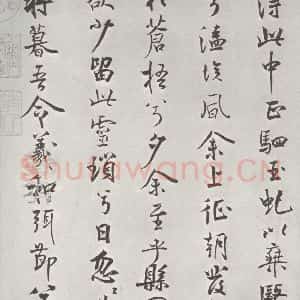 得此中正駟玉虬以椉鷖
兮溘埃風余上征朝發
於蒼梧兮夕余至乎縣
欲少留此靈瑣兮日忽
將暮吾令羲和弭節兮
Shufawang.CN